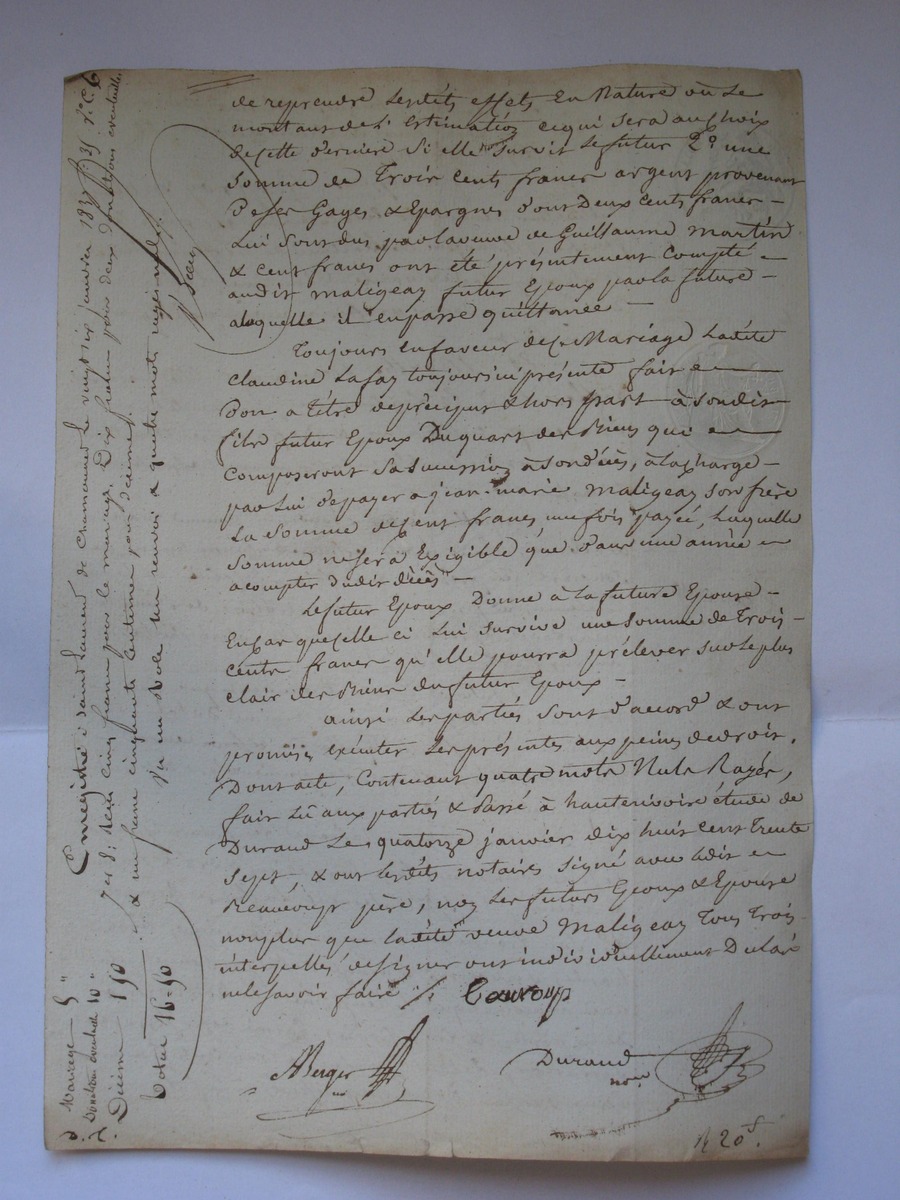 de reprendre lesdits effets En Nature ou le
montant de l'estimation ce qui sera au choix
de cette dernière Si elle survit le futur 2° une
somme de Trois cents francs argent provenant
De ses Gages & Epargnes dont Deux cents francs -
Lui sont dus par la veuve de Guillaume Martin
& cent francs ont été présentement compté -
audit maligeay futur Epoux par la future -
a laquelle il en passe quittance -
Toujours en faveur de ce Mariage Ladite
Claudine Lafay toujours ici présente fait
Don a titre de préciput & hors part à Son dit
fils futur Epoux Du quart des Biens qui
composeront sa succession à son décès, à la charge -
par Lui de payer a jean-marie maligeay son frère
La somme de Cent francs une fois payée, Laquelle
somme ne sera Exigible que dans une année
a compter dudit décès -
Le futur Epoux Donne à La future Epouse -
En cas que celle ci Lui survive une somme de Trois -
Cents francs qu'elle pourra prélever sur le plus
clair des Biens du futur Epoux -
ainsi Les parties sont d'accord & ont
promis exécuter Les présentes aux peines de droit.
Dont acte, Contenant quatre mots Nuls Rayés,
fait Lû aux parties & Passé à hauterivoire étude de
Durand Le quatorze janvier dix huit cent trente
sept, & ont lesdits notaires signé avec ledit
Beaucoup père, non Les futurs Epoux & Epouse
non plus que ladite veuve Maligeay Tous Trois -
interpellés de signer ont individuellement Déclaré
ne le savoir faire ./.
Berger
Durand
nore
20 f.
Enregistré à Saint Laurent de Chamousset le vingt six janvier 1837 f° 35 r° C. 6
reçu : cinq francs pour le mariage, Dix francs pour deux donations éventuelles
& un franc cinquante centimes pour décime.
Mariage 5 "
Donation éventuelle 10 "
Décime 1 50
Total 16-50